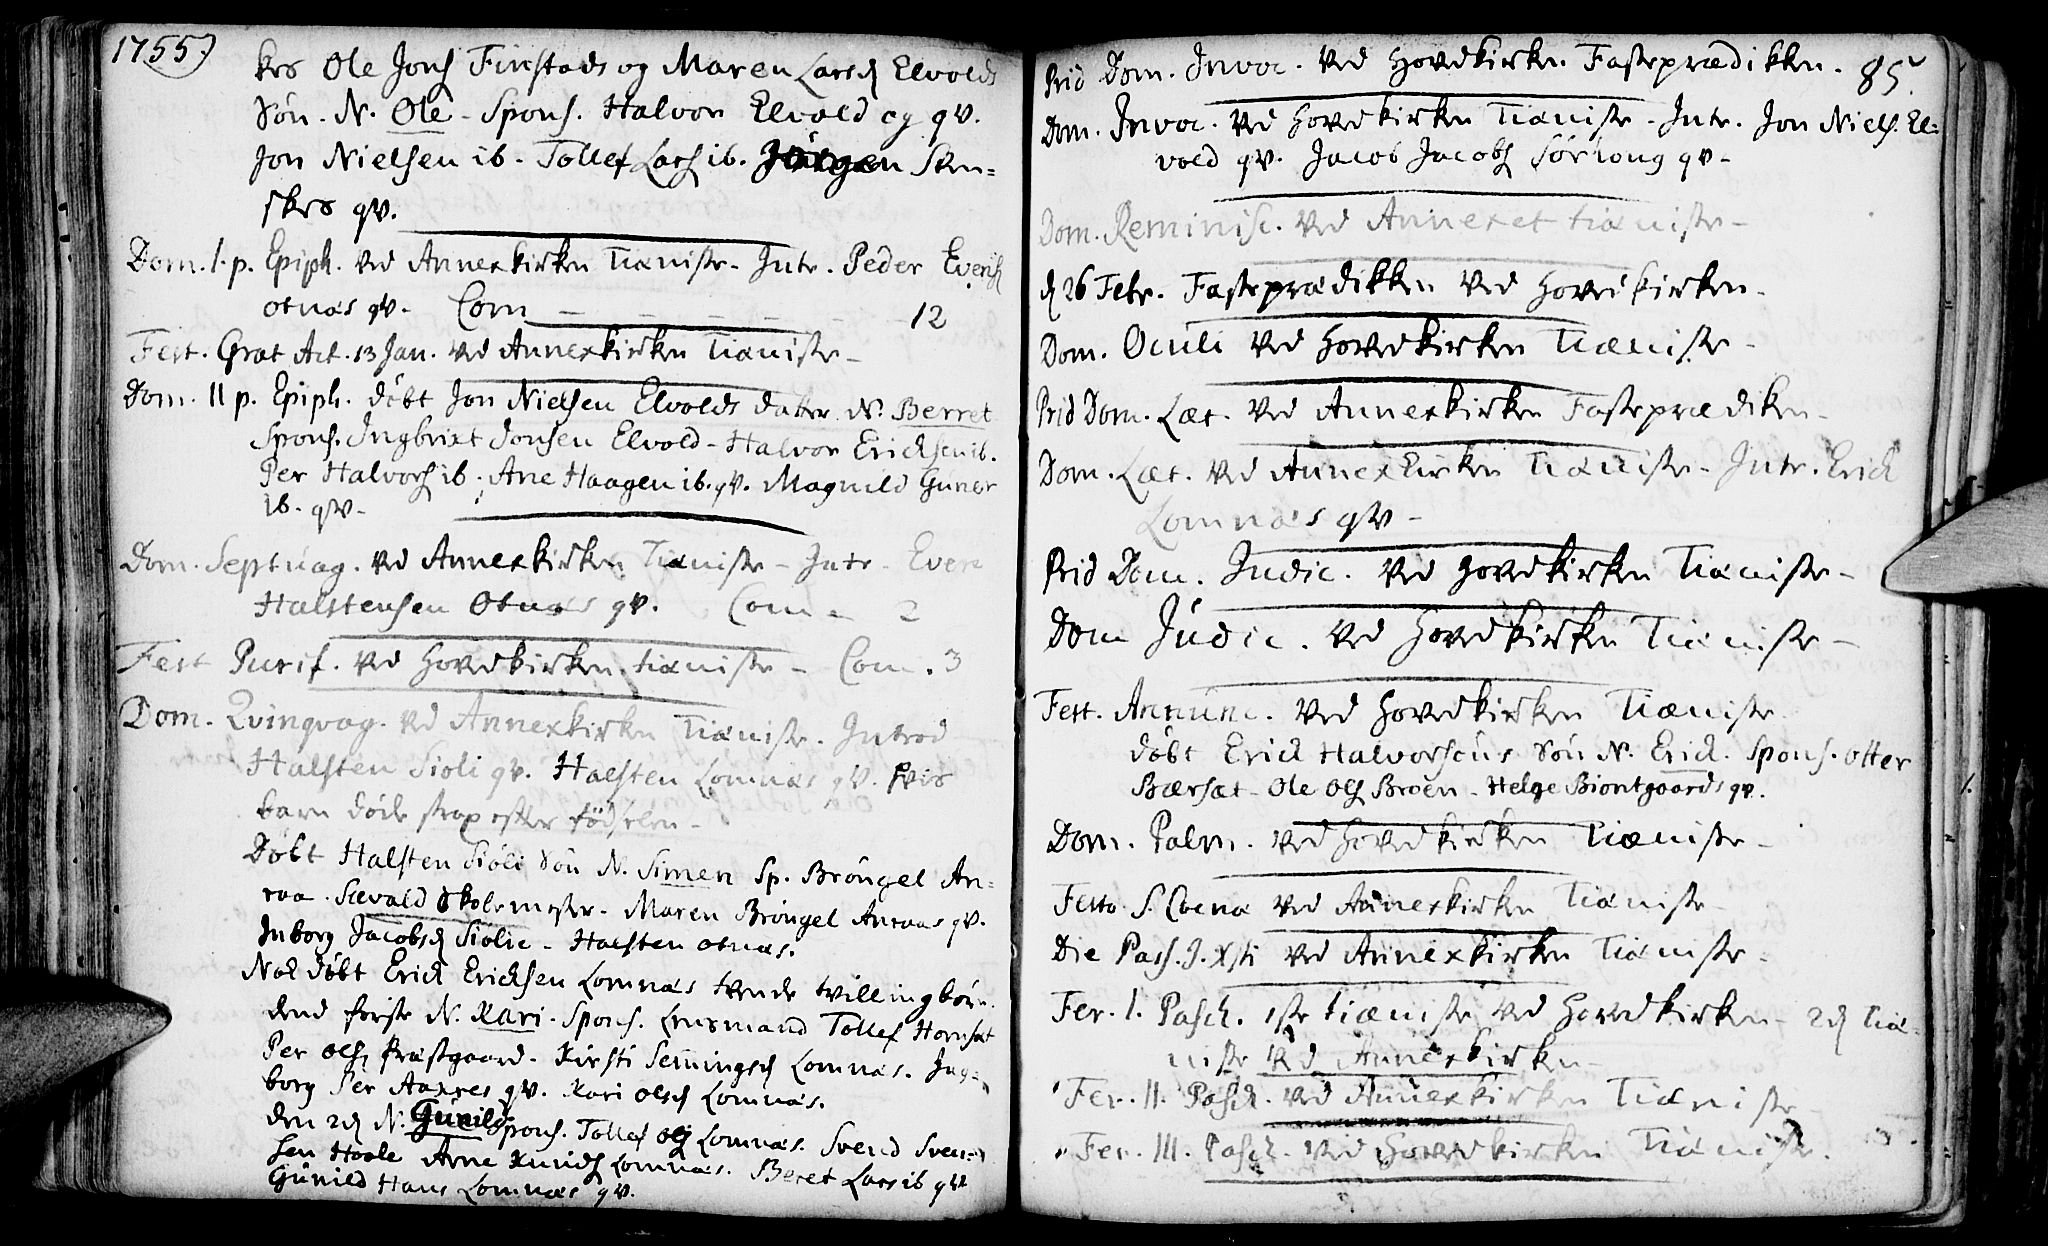 1755.
kes Ole Jons Finstads og Maren Larsd Elvolds
Søn. N. Ole - Spons. Halvor Elvold og qv.
Jon Nielsen ib. Tollef Lars ib. Jörgen Sten=
skes qv.
Dom. 1. p. Epiph. ved Annexkirken Tieniste - Intr. Peder Evens
otnæs qv. Com — — — — 12
Fest. Grat Act. 13 Jan. ved Annexkirken Tieniste -
Dom. II p. Epiph. döbt Jon Nielsen Elvolds datter N. Berret
Spons. Ingbrigt Jonsen Elvold - Halvor Ericksen ib.
Per Halvors ib. Ane Haagen ib. qv. Magnild Guner
ib. qv -
Dom. Septuag. ved Annexkirken Tieniste - Intr. Even
Halstensen Otnæs qv. Com - 2
Fest Purif. ved Hovedkirken tieniste - Com. 3
Dom. Qvinqvag. ved Annexkirken Tieniste. Introd
Halsten Siöli qv. Halsten Lomnæs qv. hvis
barn döde strax efter födselen -
Döbt Halsten Siöli Sön N. Simen Sp. Bröngel An=
raa. Sievald Skolemester - Maren Bröngel Anraas qv.
Inborg Jacobsd Siölie - Halsten otnæs.
Nok döbt Erick Ericksen Lomnæs tvende tvillingbörn.
dend förste N. Kari. Spons. Lensmand Tollef Hornset
Per ols Præstgaard. Kirsti Semmingsd Lomnæs. Ing=
borg Per Aaxres qv. Kari olsd Lomnæs.
den 2d N. Gunild Spons. Tollef Ols Lomnæs. Svend Sven=
sen Hoole Arne Knuds Lomnæs. Beret Lars ib qv
Gunild Hans Lomnæs qv.
Prid Dom. Invoc. ved Hovedkirken Fasteprædikken. 85.
Dom. Invoc. ved Hovedkirken Tieniste - Intr. Jon Niels. El=
vold qv. Jacob Jacobs Sörhoug qv -
Dom. Reminisc. ved Annexet tieniste -
d 26 Febr. Fasteprædikken ved Hovedkirken.
Dom. Oculi ved Hovedkirken Tieniste -
Prid Dom. Læt. ved Annexkirken Fasteprædiken -
Dom. Læt. ved Annexkirken Tieniste - Intr. Erick
Lomnæs qv -
Prid Dom. Judic. ved Hovedkirken Tieniste -
Dom Judic. ved Hovedkirken Tieniste -
Fest. Annunc. ved Hovedkirken Tieniste
döbt Erick Halvorsens Sön N. Erick. Spons. Otter
Bærsæt - Ole Ols Broen - Helge Biontgaards qv.
Dom. Palm. ved Hovedkirken Tieniste -
Festo S. Coena ved Annexkirken Tieniste
Die Pass. J. Xsti ved Annexkirken Tieniste -
Fer. I. Pasch. 1ste tieniste ved Hovedkirken - 2d Tie=
niste ved Annexkirken -
Fer. II. Pasch. ved Annexkirken Tieniste -
Fer. III. Pasch. ved Hovedkirken Tieniste.